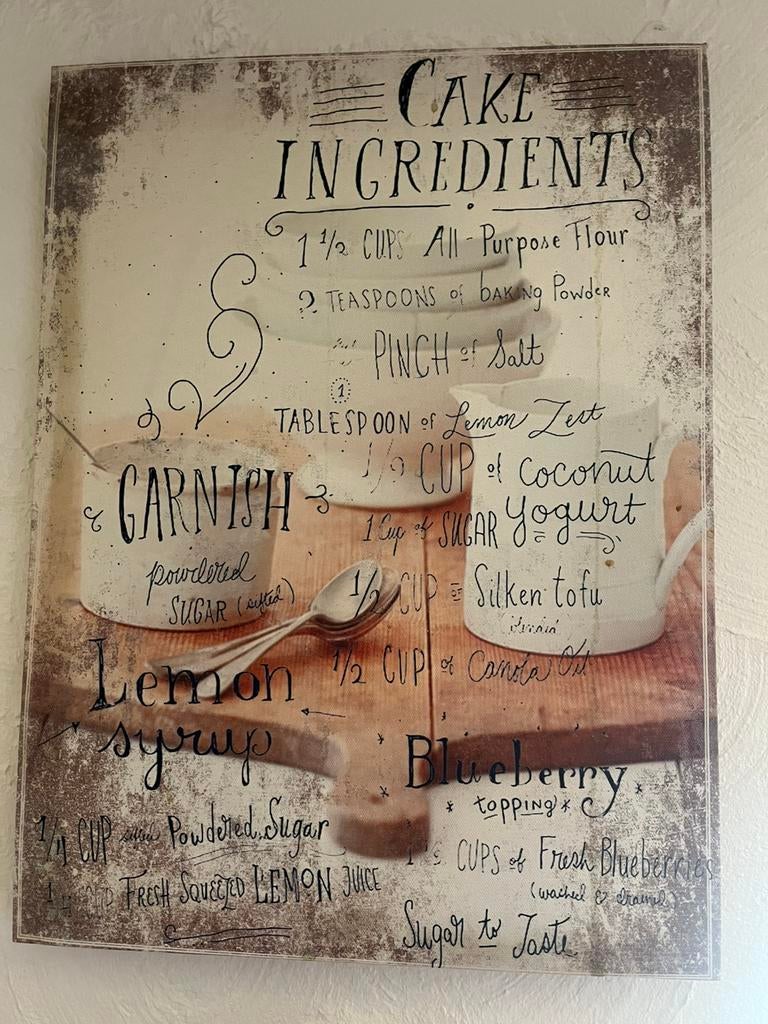 CAKE
INGREDIENTS
1 1/2 CUPS All-Purpose Flour
2 TEASPOONS of baking Powder
PINCH of Salt
1
TABLESPOON of Lemon Zest
CUP of coconut
Yogurt
1 Cup of SUGAR
1/2 CUP of Silken tofu
1/2 CUP of Canola Oil
GARNISH
powdered
SUGAR (sifted)
Lemon
syrup
1/4 CUP Powdered Sugar
CUP FRESH SQUEEZED LEMON JUICE
Blueberry
topping
CUPS of Fresh Blueberries
(washed & drained)
Sugar to Taste